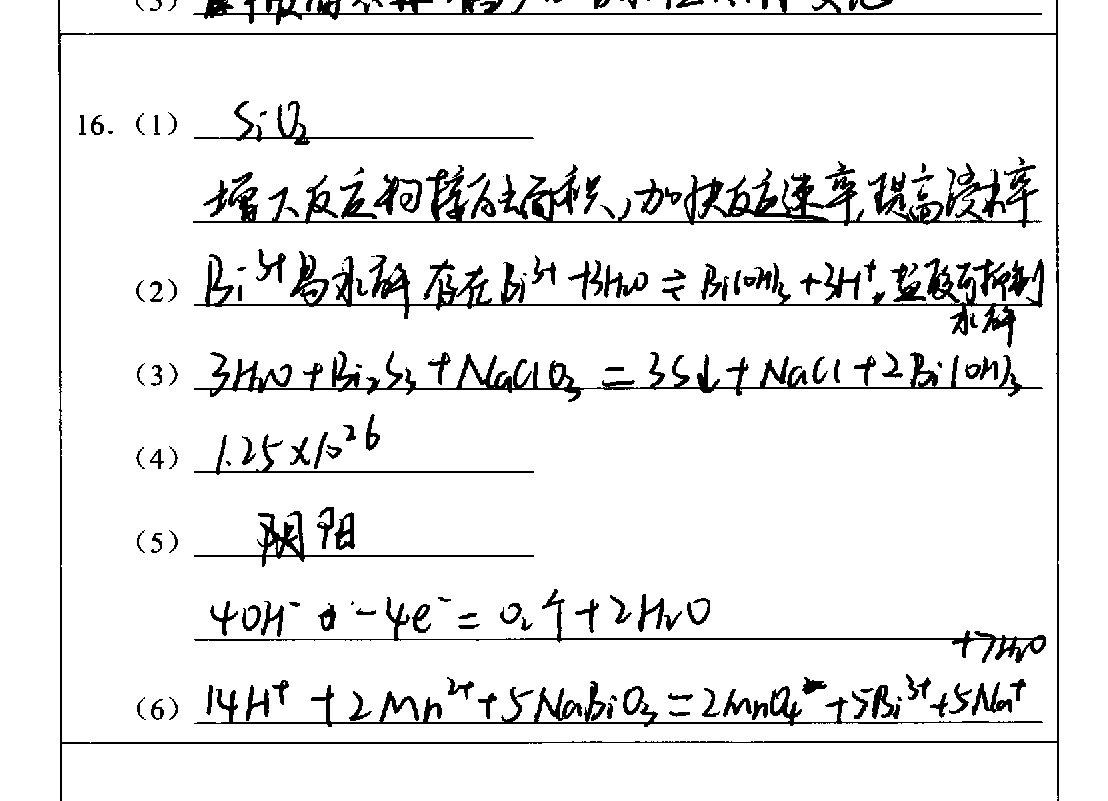 (5)
16. (1) SiO₂
增大反应物接触面积,加快反应速率,提高浸率
(2) Bi³⁺易水解 存在Bi³⁺+3H₂O⇌Bi(OH)₃+3H⁺,盐酸可抑制
水解
(3) 3H₂O+Bi₂S₃+NaClO₃=3S↓+NaCl+2Bi(OH)₃
(4) 1.25×10²⁶
(5) 阴 阳
4OH⁻ -4e⁻=O₂↑+2H₂O
+7H₂O
(6) 14H⁺+2Mn²⁺+5NaBiO₃=2MnO₄⁻+5Bi³⁺+5Na⁺